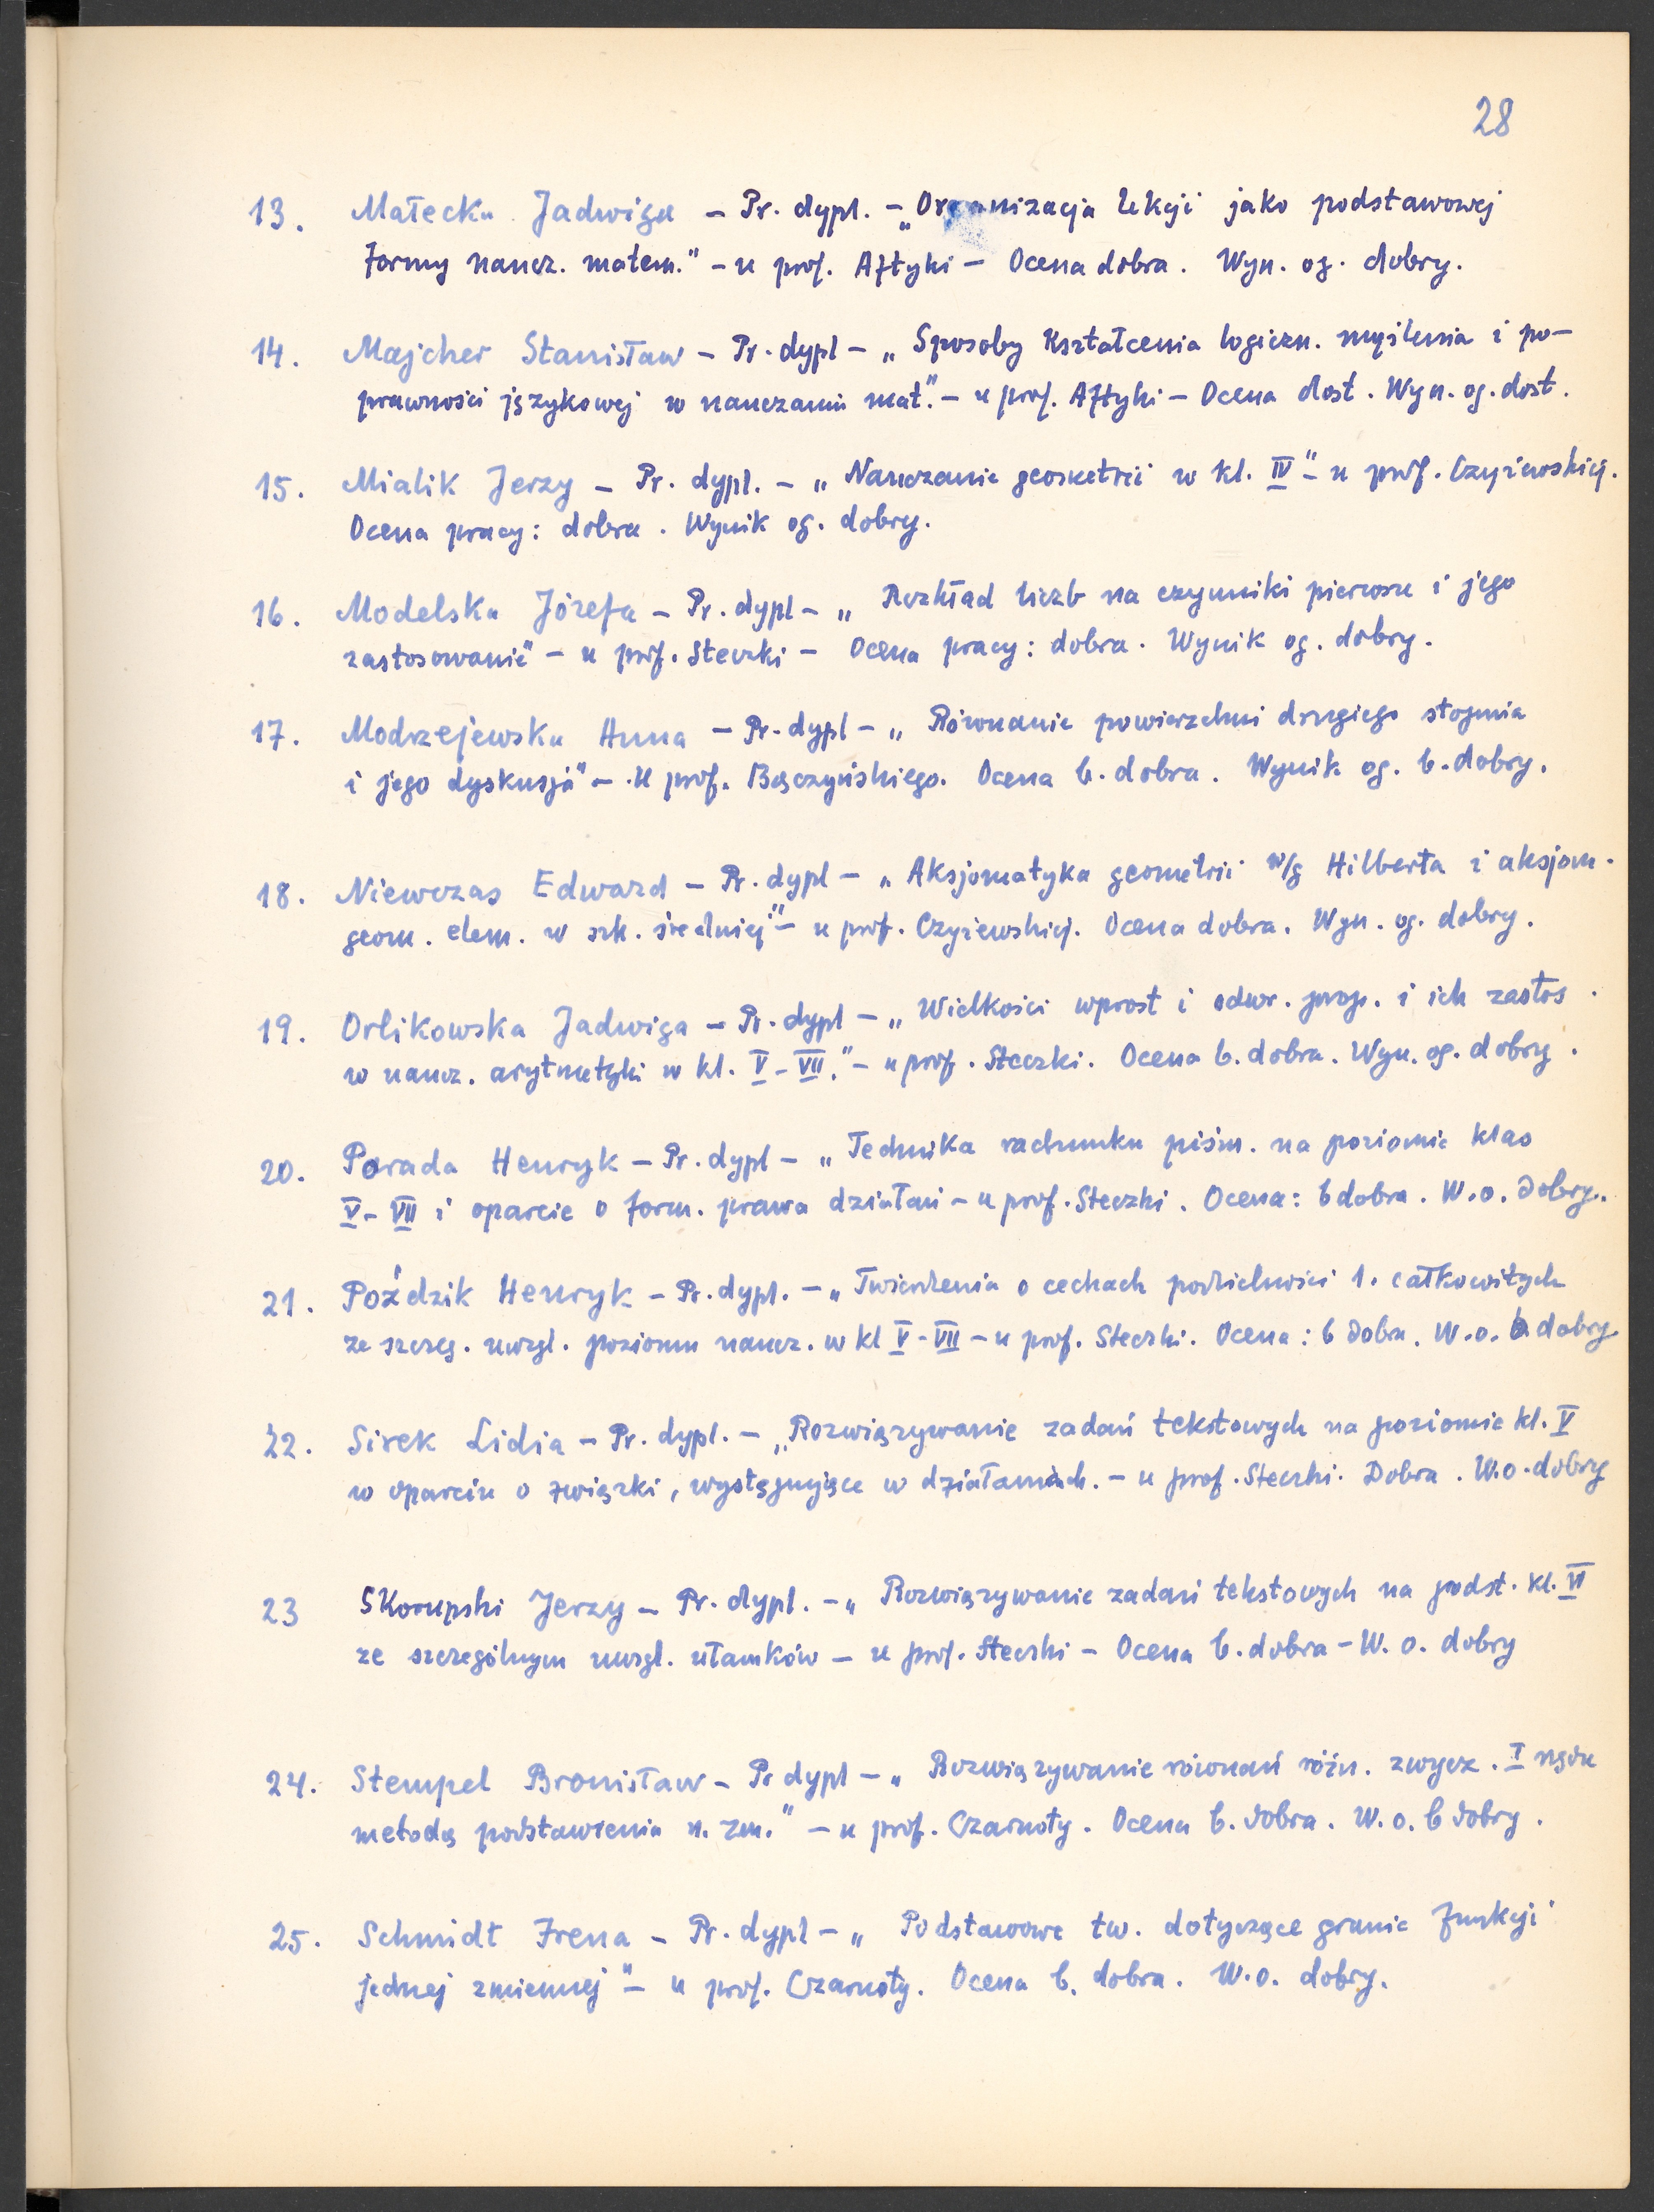 28
13. Małecka Jadwiga – Pr. dypl. – „Organizacja lekcji jako podstawowej
formy naucz. matem." – u prof. Aftyki – Ocena dobra. Wyn. og. dobry.
14. Majcher Stanisław – Pr. dypl – „Sposoby kształcenia logiczn. myślenia i po-
prawności językowej w nauczaniu mat." – u prof. Aftyki – Ocena dost. Wyn. og. dost.
15. Mialik Jerzy – Pr. dypl. – „Nauczanie geometrii w kl. IV" – u prof. Czyżewskiej.
Ocena pracy: dobra. Wynik og. dobry.
16. Modelska Józefa – Pr. dypl – „Rozkład liczb na czynniki pierwsze i jego
zastosowanie" – u prof. Steczki – Ocena pracy: dobra. Wynik og. dobry.
17. Modrzejewska Anna – Pr. dypl – „Równanie powierzchni drugiego stopnia
i jego dyskusja" – u prof. Bączyńskiego. Ocena b. dobra. Wynik og. b. dobry.
18. Niewczas Edward – Pr. dypl – „Aksjomatyka geometrii w/g Hilberta i aksjom.
geom. elem. w szk. średniej" – u prof. Czyżewskiej. Ocena dobra. Wyn. og. dobry.
19. Orlikowska Jadwiga – Pr. dypl – „Wielkości wprost i odwr. prop. i ich zastos.
w naucz. arytmetyki w kl. V – VII." – u prof. Steczki. Ocena b. dobra. Wyn. og. dobry.
20. Porada Henryk – Pr. dypl – „Technika rachunku piśm. na poziomie klas
V – VII i oparcie o form. prawa działań – u prof. Steczki. Ocena: b dobra. W. o. dobry.
21. Poździk Henryk – Pr. dypl. – „Twierdzenia o cechach podzielności l. całkowitych
ze szczeg. uwzgl. poziomu naucz. w kl V – VII – u prof. Steczki. Ocena: b dobra. W. o. b dobry.
22. Sirek Lidia – Pr. dypl. – „Rozwiązywanie zadań tekstowych na poziomie kl. V
w oparciu o związki, występujące w działaniach. – u prof. Steczki. Dobra. W. o. dobry
23 Skorupski Jerzy – Pr. dypl. – „Rozwiązywanie zadań tekstowych na podst. kl. VI
ze szczególnym uwzgl. ułamków – u prof. Steczki – Ocena b. dobra – W. o. dobry
24. Stempel Bronisław – Pr dypl – „Rozwiązywanie równań różn. zwycz. I rzędu
metodą podstawienia n. zm." – u prof. Czarnoty. Ocena b. dobra. W. o. b dobry.
25. Schmidt Irena – Pr. dypl – „Podstawowe tw. dotyczące granic funkcji
jednej zmiennej" – u prof. Czarnoty. Ocena b. dobra. W. o. dobry.